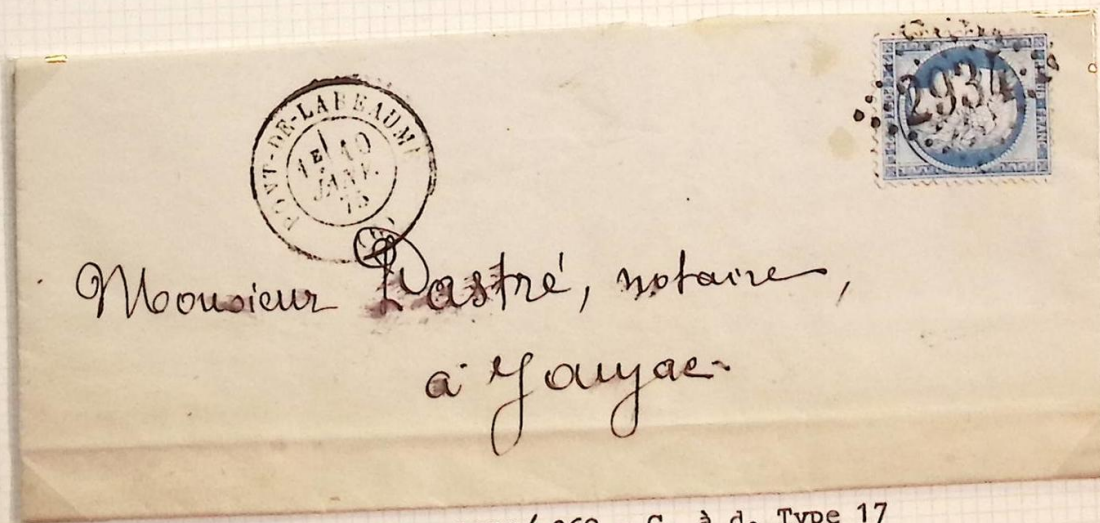 PONT-DE-LABEAUME
1E/ 10
JANV.
75
2934
Monsieur Dastré, notaire,
à Jaujac.
C. à d. Type 17